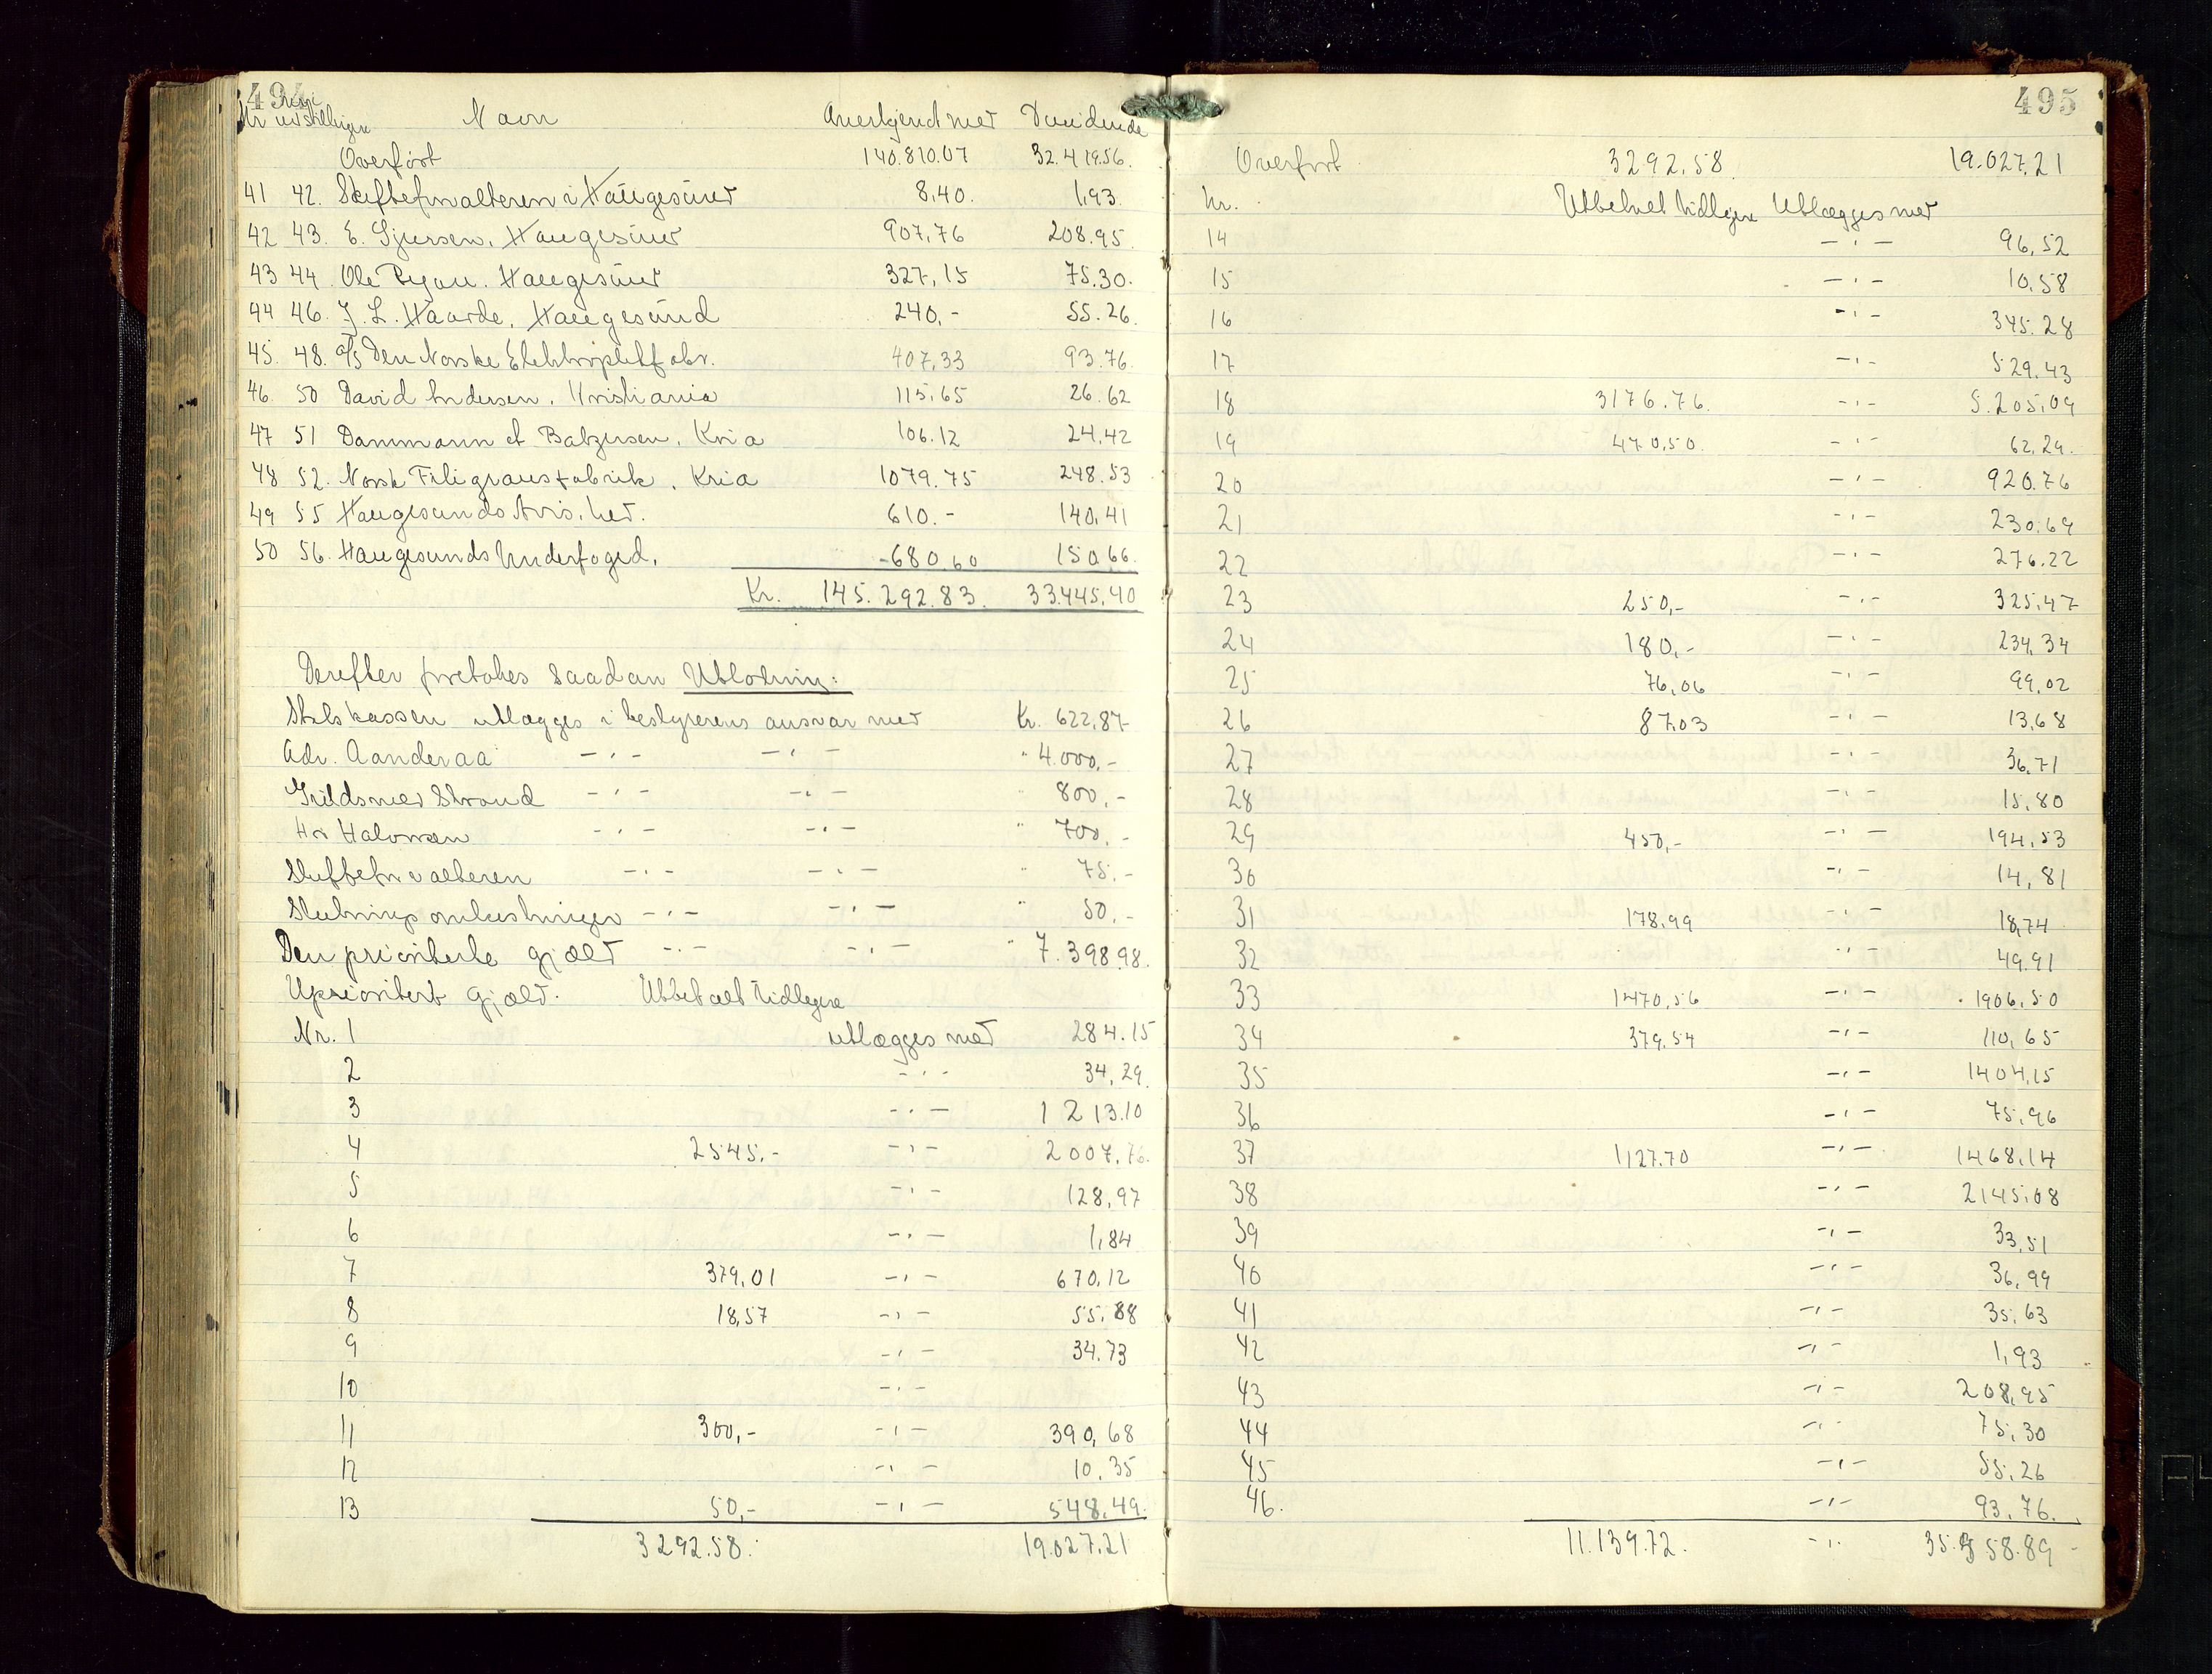 494
Nr Navn Anerkjend med Dividende
Overført 140.810.07 32.419.56.
41 42. Skifteforvalteren i Haugesund 8,40. 1,93.
42 43. E. Sjursen, Haugesund 907,76 208.95
43 44 Ole Bryan. Haugesund 327,15 75.30.
44 46. J. L. Haarde. Haugesund 240,- 55.26.
45. 48. A/S Den Norske Elektropletfabr. 407,33 93.76.
46. 50 David Andersen. Kristiania 115,65 26.62
47 51 Dammann et Balzersen. Kria 106.12 24.42
48 52. Norsk Filigransfabrik. Kria 1079.75 248.53
49 55 Haugesunds Avis, her. 610.- 140,41
50 56. Haugesunds Underfoged, 680,60 150,66.
Kr. 145.292.83. 33.445,40
Derefter foretokes saadan Utlodning:
Stats kassen utlægges i bestyrerens ansvar med Kr. 622,87
Adv. Aanderaa -"- -"- " 4.000,-
Guldsmed Strand -"- -"- " 800,-
Hr Halvorsen -"- -"- " 700,-
Skifteforvalteren -"- -"- " 75,-
Slutningsomkostninger -"- -"- " 50,-
Den prioriterte gjæld -"- -"- " 7.398.98.
Uprioritert gjæld. Utbetalt tidligere
Nr. 1 utlægges med 284.15
2 -"- 34,29.
3 -"- 1213.10
4 2545,- -"- 2007,76.
5 -"- 128,97
6 -"- 1,84
7 379,01 -"- 670,12
8 18,57 -"- 55,88
9 -"- 34.73
10 -"-
11 300,- -"- 390,68
12 -"- 10,35
13 50,- -"- 548,49.
3292.58. 19.027.21
495
Overført 3292,58. 19.027,21
Nr. Utbetalt tidligere Utlægges med
14 -"- 96,52
15 -"- 10,58
16 -"- 345.28
17 -"- 529.43
18 3176.76. -"- 5.205,09
19 470,50. -"- 62,29.
20 -"- 920.76
21 -"- 230,69
22 -"- 276.22
23 250,- -"- 325,47
24 180,- -"- 234,34
25 76,06 -"- 99,02
26 87,03 -"- 13,68
27 -"- 36,71
28 -"- 15,80
29 450,- -"- 194,53
30 -"- 14,81
31 178,99 -"- 18,74
32 -"- 49.91
33 1470,56 -"- 1906,50
34 379,54 -"- 110,65
35 -"- 1404,15
36 -"- 75,96
37 1127.70 -"- 1468,14
38 -"- 2145,08
39 -"- 33,51
40 -"- 36,99
41 -"- 35,63
42 -"- 1,93
43 -"- 208,95
44 -"- 75,30
45 -"- 55,26
46. -"- 93,76.
11.139.72. -"- 35.358.89